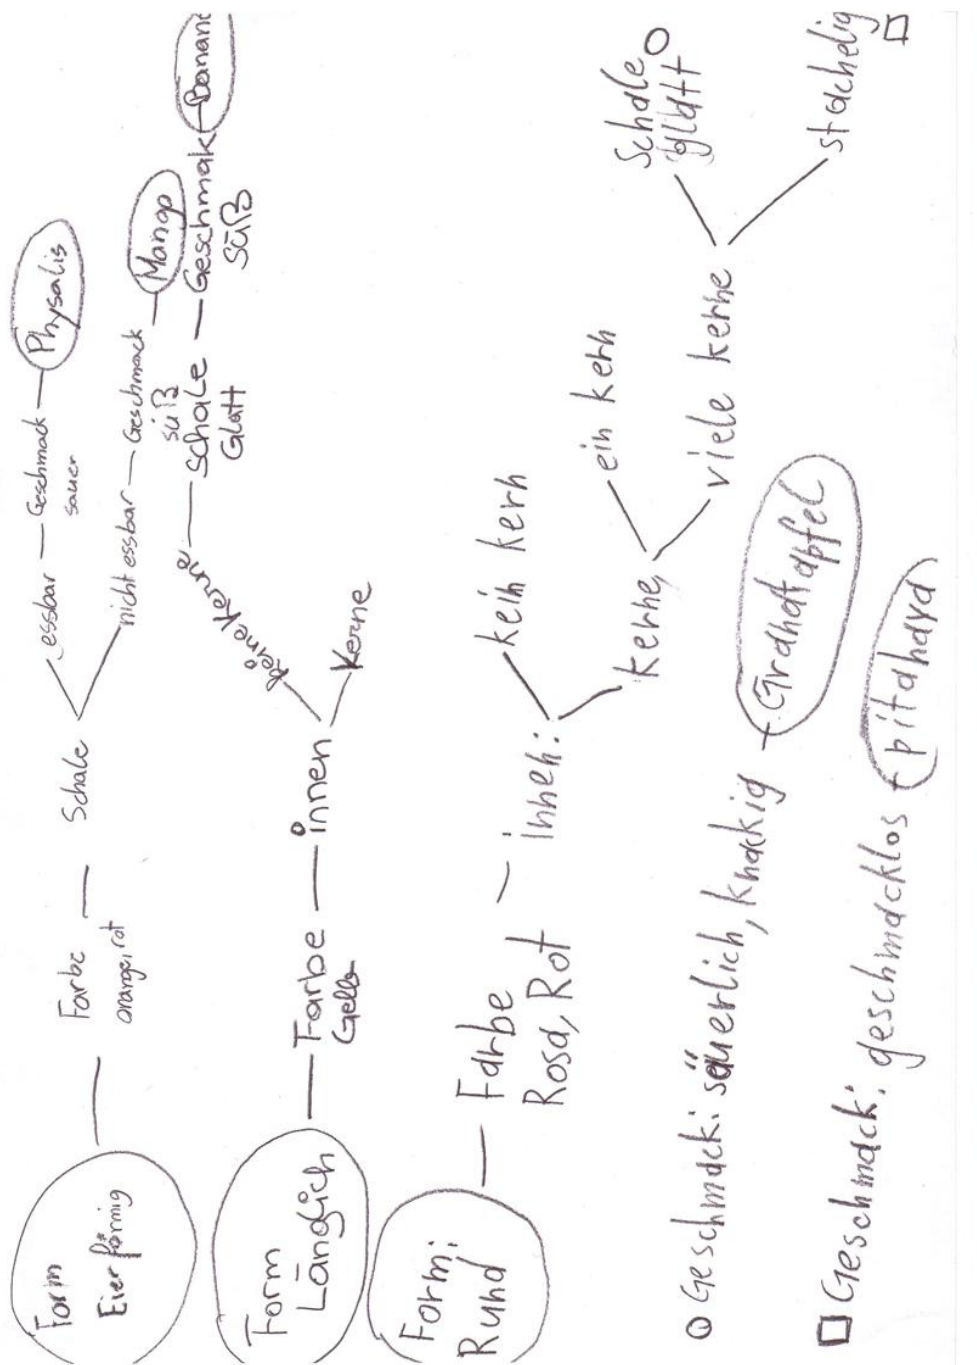 Form
Eierförmig
Farbe
orange, rot
Schale
essbar
Geschmack
sauer
Physalis
nicht essbar
Geschmack
süß
Mango
Form
Länglich
Farbe
Gelb
innen
keine Kerne
Schale
Glatt
Geschmak
süß
Banane
Kerne
Form:
Rund
Farbe
Rosa, Rot
innen:
kein kern
kerne
ein kern
viele kerne
Schale
glatt
stachelig
Geschmack: säuerlich, knackig
Granatapfel
Geschmack: geschmacklos
pitahaya